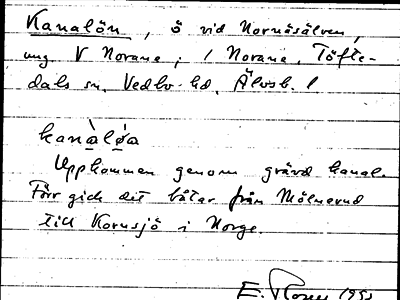 Kanalön, ö vid Nornäsälven,
ung V Norane, / Norane, Töfte-
dals sn. Vedbo hd. Älvsb. /
kanàlǿa
Uppkommen genom grävd kanal.
Förr gick det båtar från Mölnerud
till Kornsjö i Norge.
E. 195